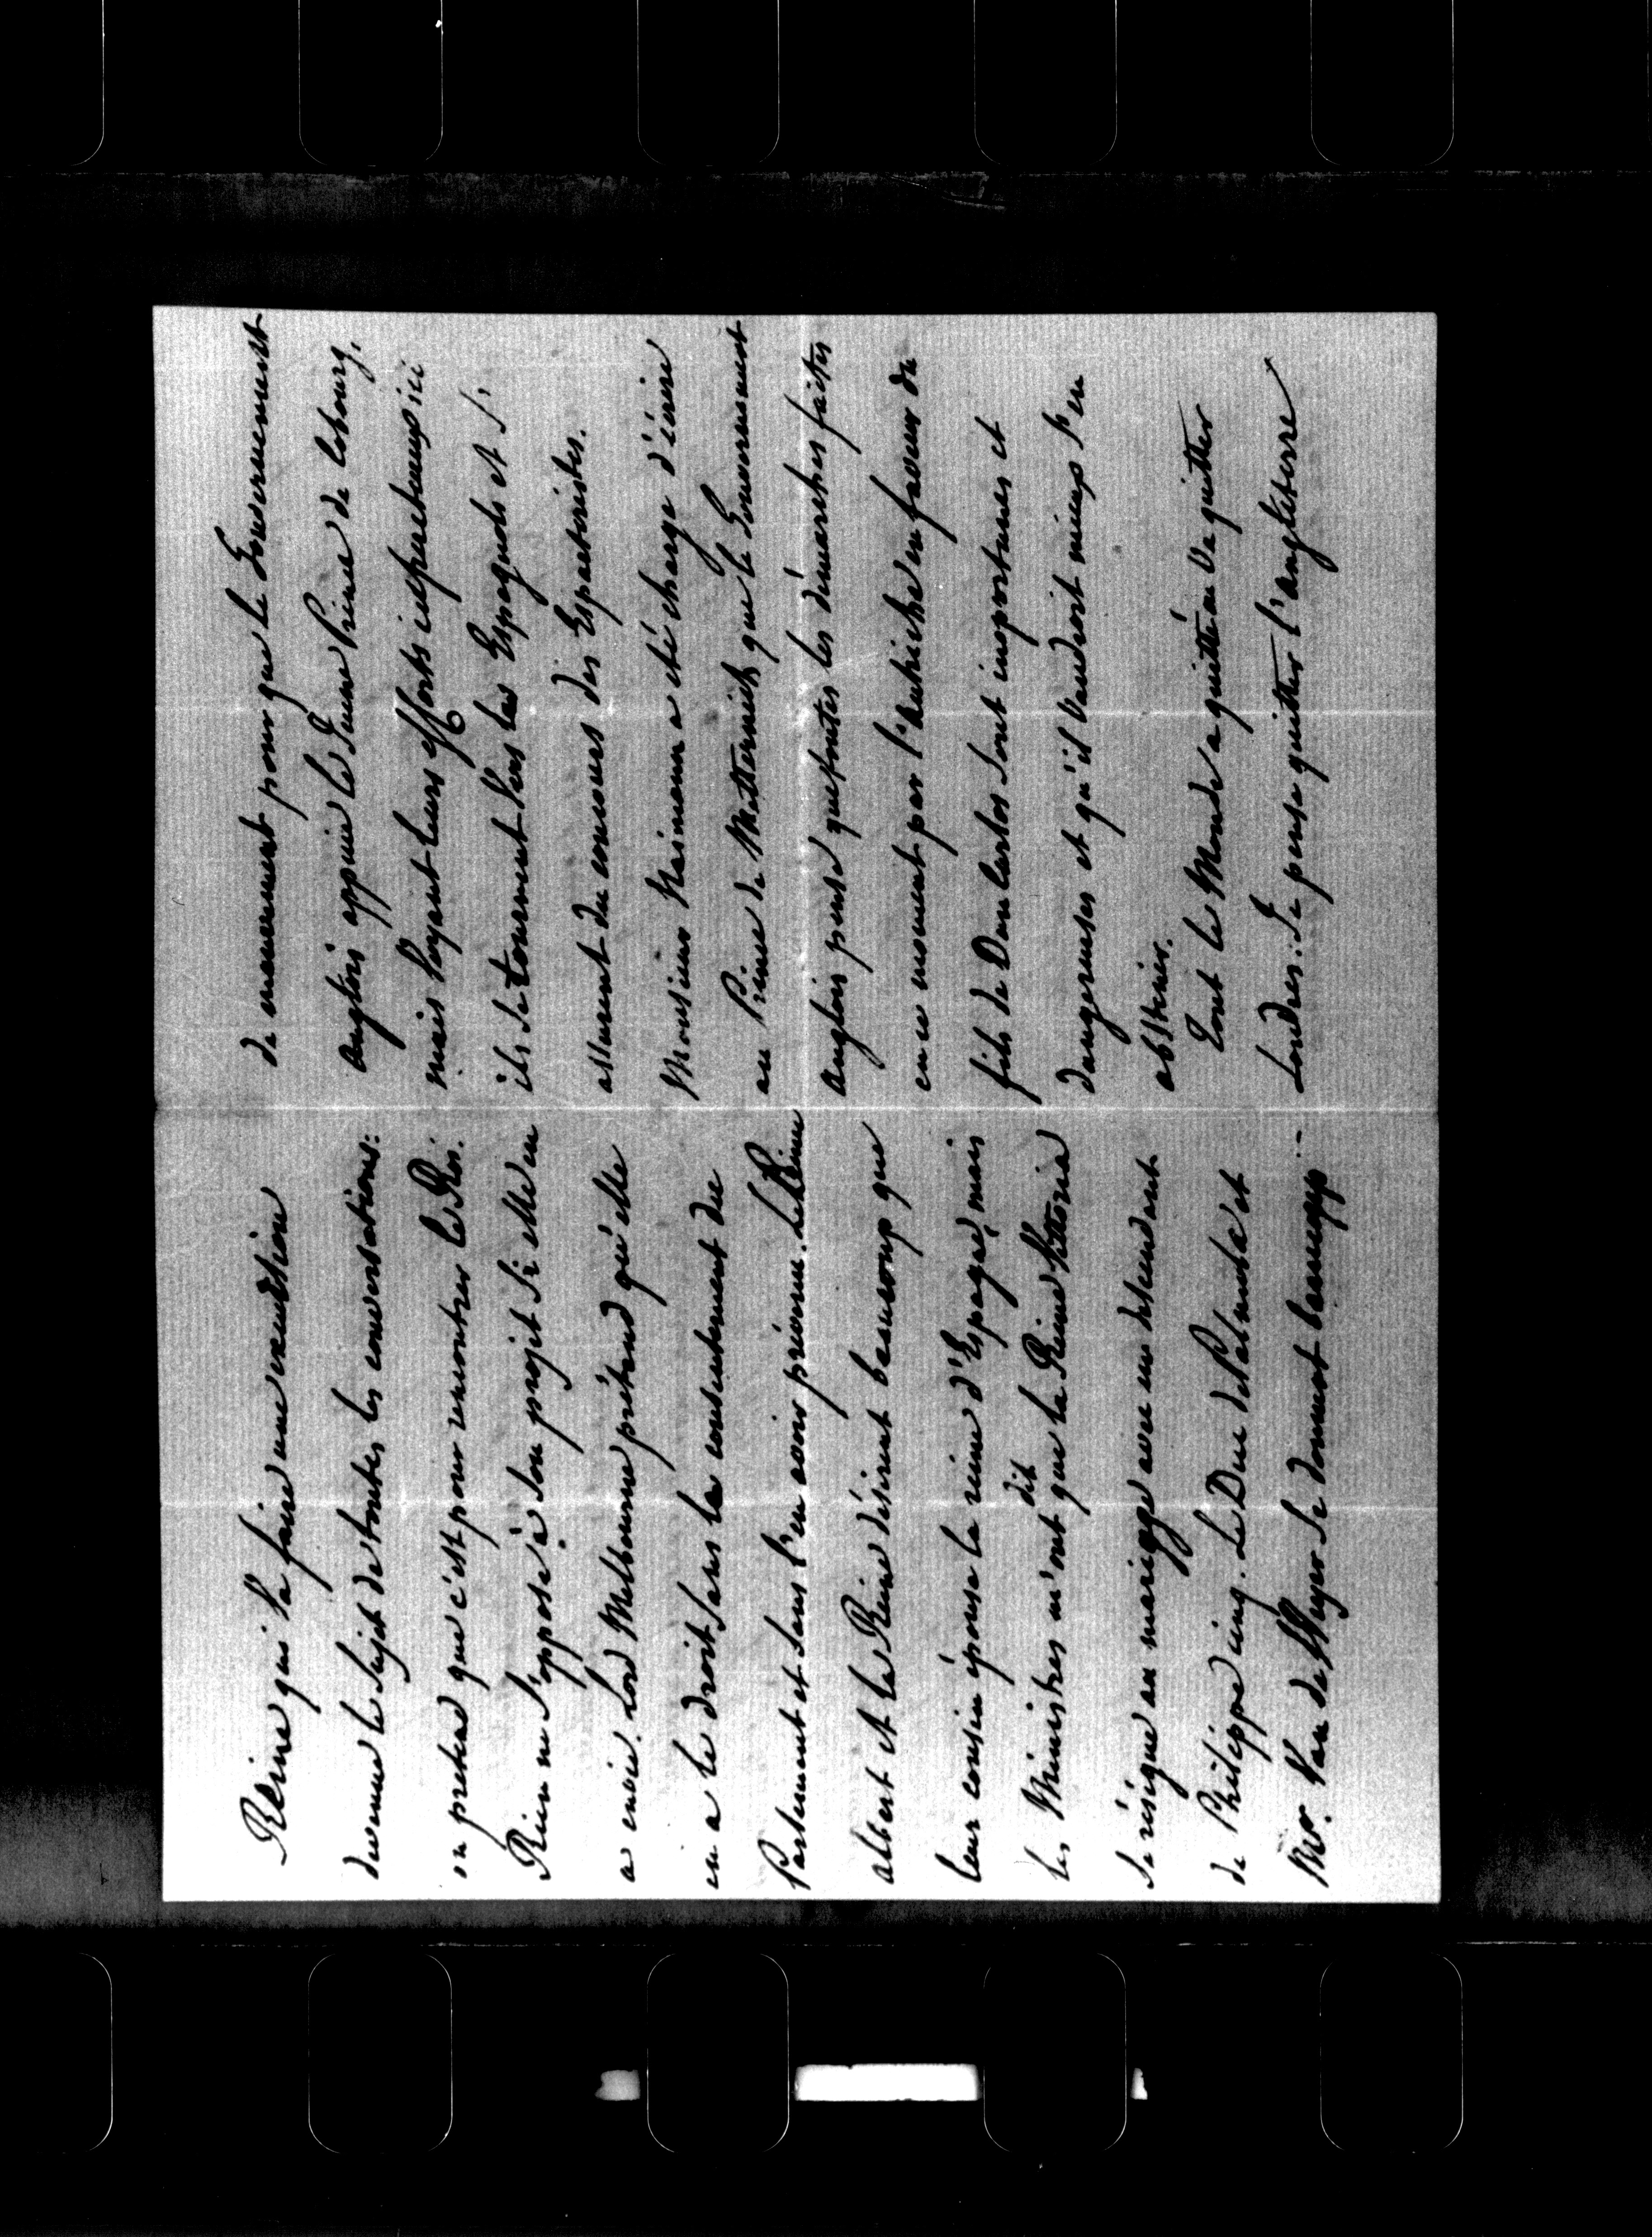 Reine qui va faire une excursion
devenue le sujet de toutes les conversations:
on pretend que c'est pour rencontrer le Roi.
Rien ne s'oppose à son projet si elle en
a envie. Lord Melbourne prétend qu'elle
en a le droit sans le consentement du
Parlement et sans l'en avoir prévenu. Le Prince
albert et la Reine désirent beaucoup que
leur cousin épouse la reine d'Espagne, mais
les Ministres m'ont dit que la Reine Victoria
se résigne au mariage avec un descendant
de Philippe cinq. Le Duc de Palmela et
Mr. Van de Weyer se donnent beaucoup
de mouvement pour que le Gouvernement
anglois appuie le Jeune Prince de Cobourg,
mais voyant leurs efforts infructueux ici
ils se tournent vers les Espagnols et s'
assurent du concours des Esparteristes.
Monsieur Neumann a été chargé d'écrire
au Prince de Metternich que le Gouvernement
anglois pense que toutes les démarches faites
en ce moment par l'Autriche en faveur du
fils de Don Carlos sont inoportunes et
dangereuses et qu'il vaudroit mieux s'en
abstenir.
Tout le Monde a quitté ou va quitter
Londres. Je pense quitter l'angleterre